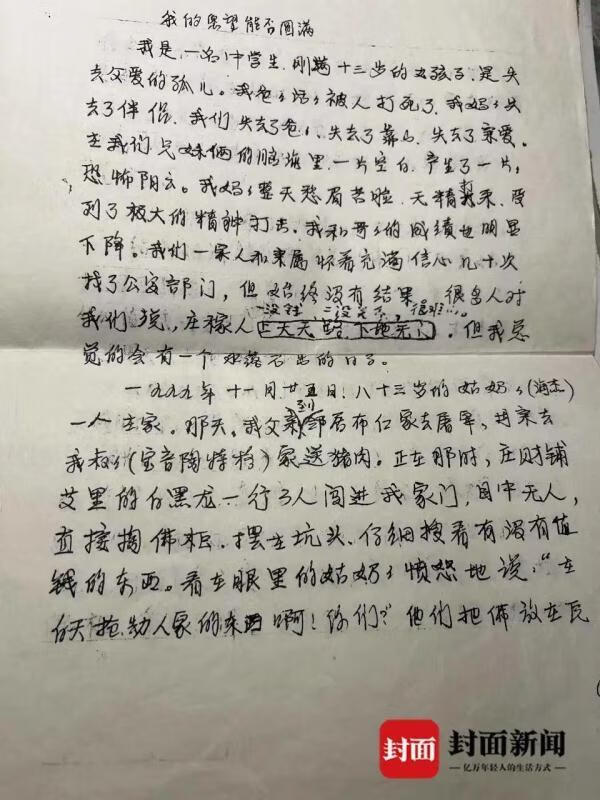 我的愿望能否圆满
我是一名中学生，刚满十三岁的女孩子，是失
去父爱的孤儿。我爸爸活活被人打死了，我妈妈失
去了伴侣，我们失去了爸爸，失去了靠山，失去了亲爱。
在我们兄妹俩的脑海里一片空白，产生了一片片
恐怖阴云。我妈妈整天愁眉苦脸，无精打采，受
到了极大的精神打击。我和哥哥的成绩也明显
下降。我们一家人和亲属怀着充满信心几十次
找了公安部门，但始终没有结果，很多人对
一没钱，二没关系，很难…。
我们说，庄稼人上天无路，下地无门，但我总
觉的会有一个水落石出的日子。
一九九九年十一月廿五日，八十三岁的姑奶奶(海杰)
一人在家。那天，我父亲到邻居布仁家去屠宰，母亲去
我叔叔(宝音陶特格)家送猪肉。正在那时，庄财铺
艾里的白黑龙一行3人闯进我家门，目中无人，
直接掏佛柜，摆在坑头，仔细搜看有没有值
钱的东西。看在眼里的姑奶奶愤怒地说："在
白天抢劫人家的东西啊！你们？"他们把佛放在瓦
封面 封面新闻
亿万年轻人的生活方式